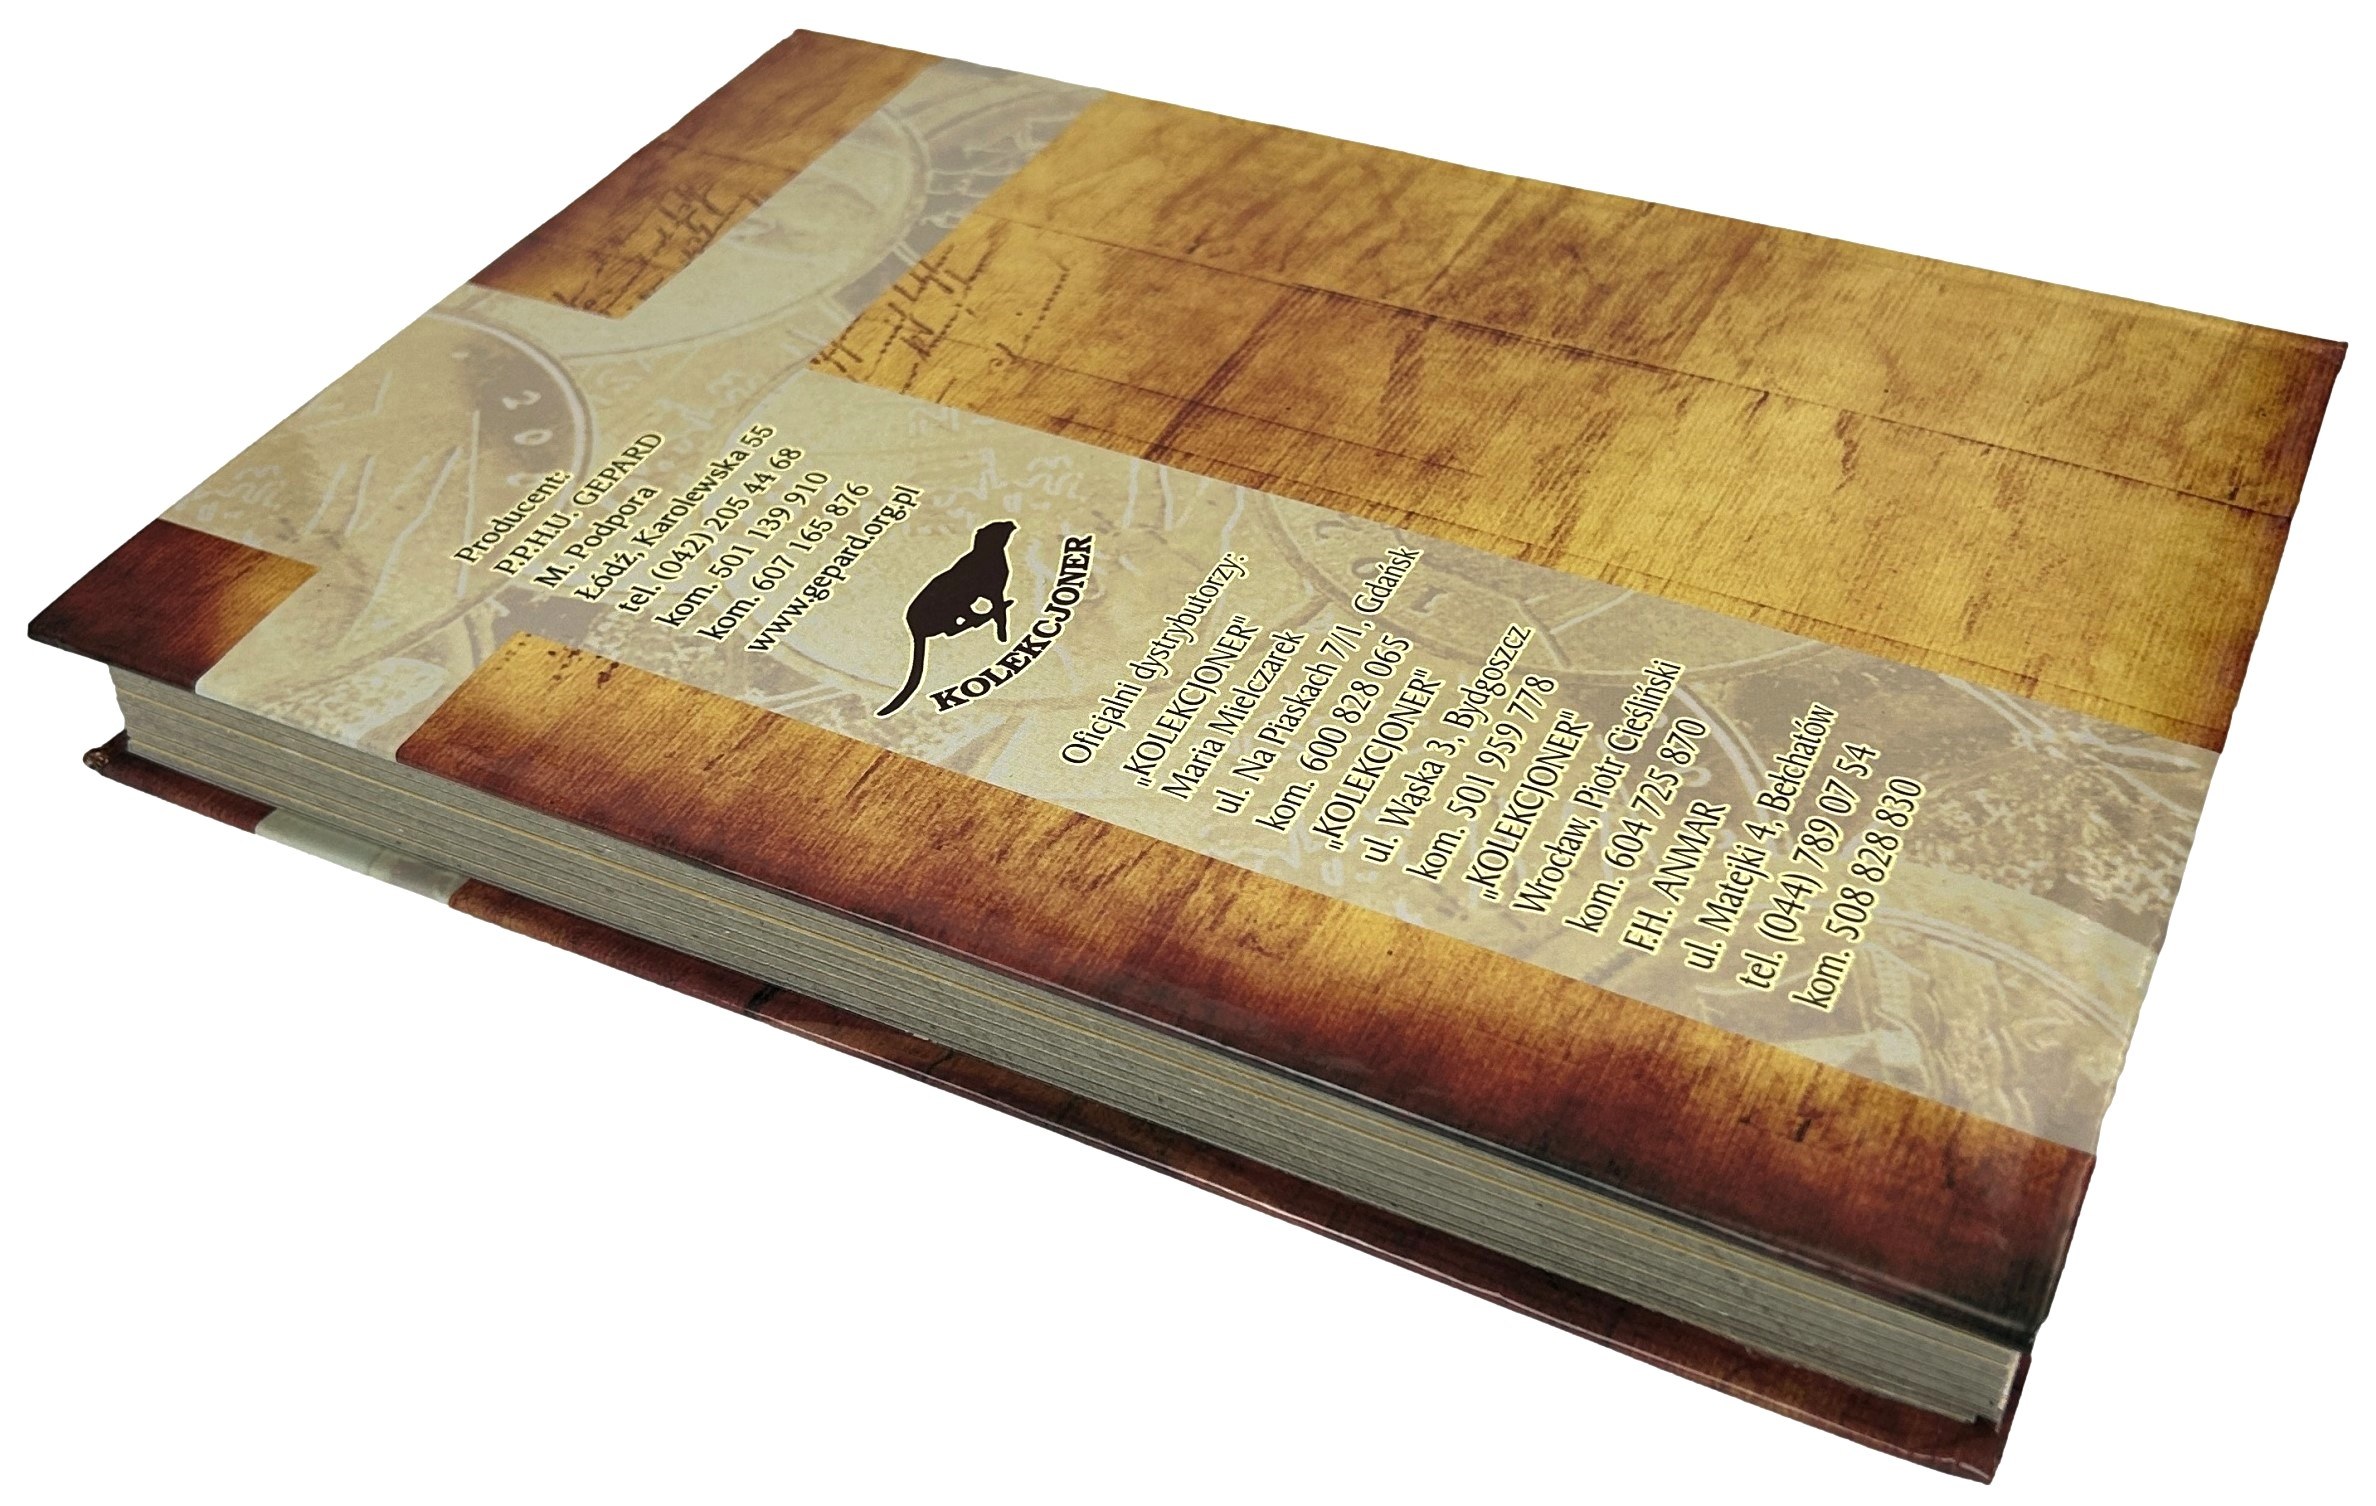 Producent:
P.P.H.U. GEPARD
M. Podpora
Łódź, Karolewska 55
tel. (042) 205 44 68
kom. 501 139 910
kom. 607 165 876
www.gepard.org.pl
KOLEKCJONER
Oficjalni dystrybutorzy:
"KOLEKCJONER"
Maria Mielczarek
ul. Na Piaskach 7/1, Gdańsk
kom. 600 828 065
"KOLEKCJONER"
ul. Wąska 3, Bydgoszcz
kom. 501 959 778
"KOLEKCJONER"
Wrocław, Piotr Cieśliński
kom. 604 725 870
F.H. ANMAR
ul. Matejki 4, Bełchatów
tel. (044) 789 07 54
kom. 508 828 830